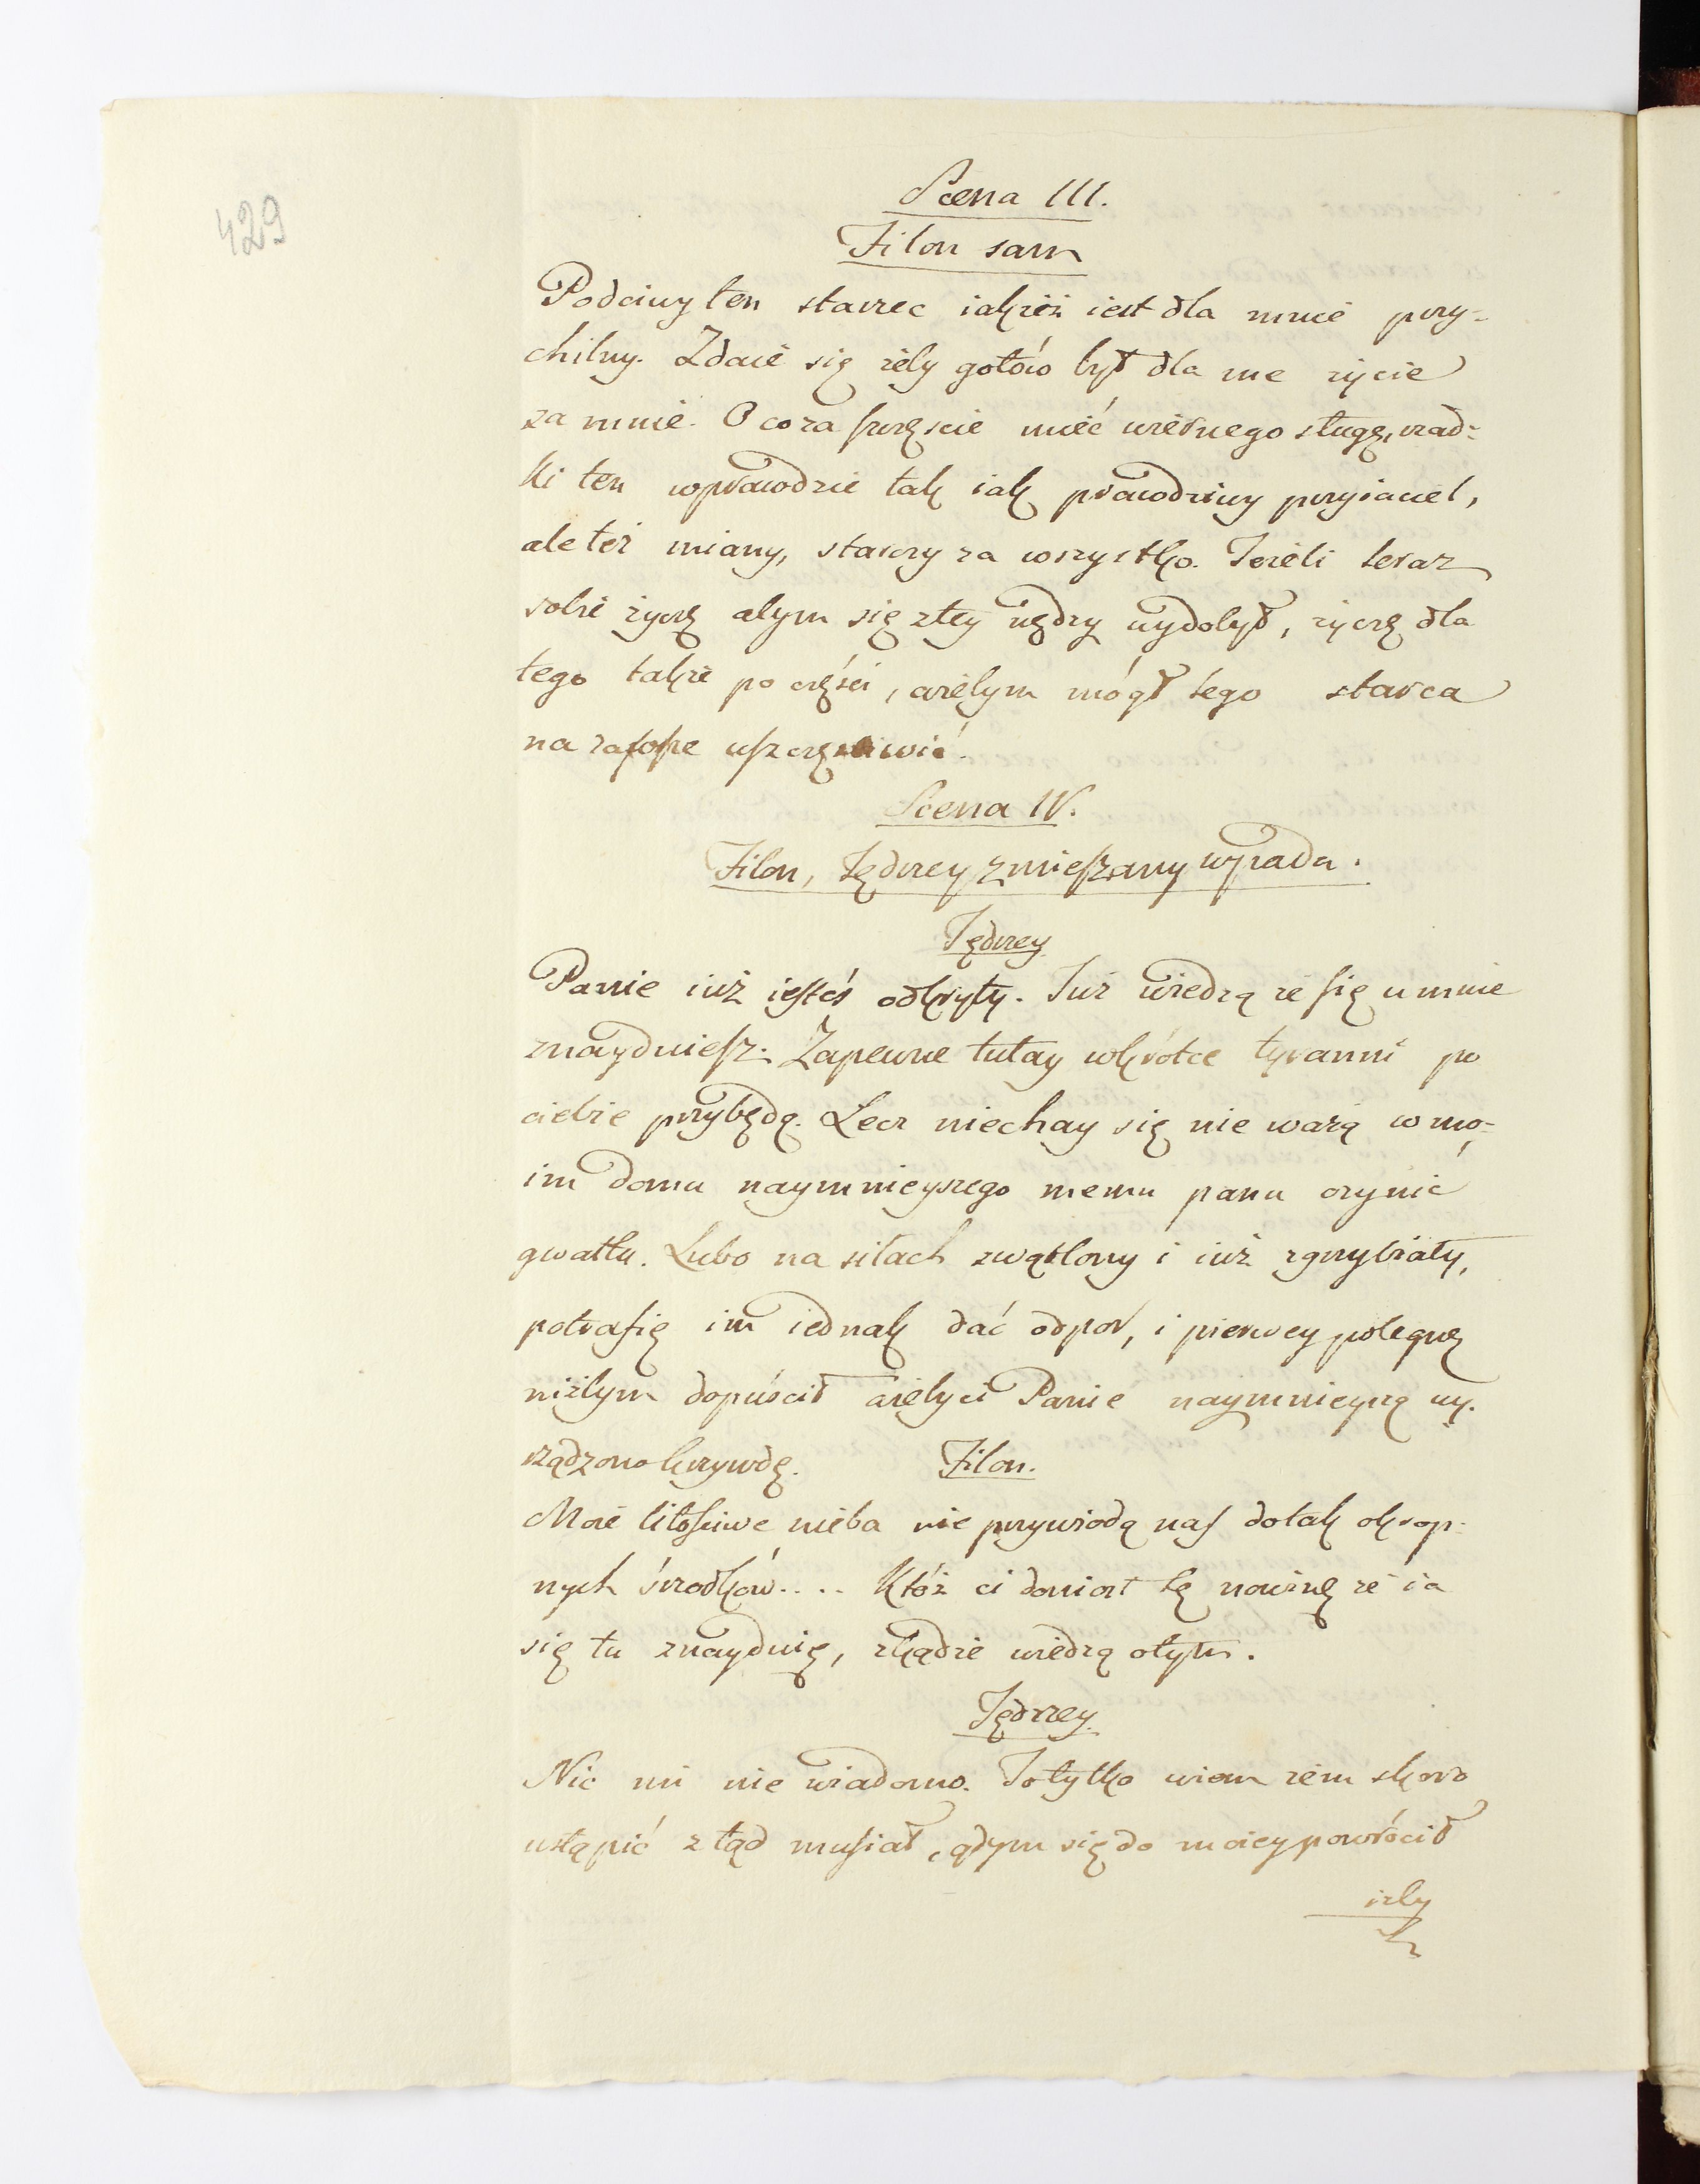 429
Scena III.
Filon sam
Podciwy ten starzec iakżeż iest dla mnie przy-
chilny. Zdaie się żeby gotów był dla me życie
za mnie. O co za szczęście mieć wiernego sługę, rzad-
ki ten wprawdzie tak iak prawdziwy przyiaciel,
ale też miany, starczy za wszystko. Jeżeli teraz
sobie życzę abym się z tey nędzy wydobył, życzę dla
tego także po części, ażebym mógł tego starca
na zawsze uszczęśliwić.
Scena IV.
Filon, Jędrzey zmieszany wpada.
Jędrzey
Panie iuż iesteś odkryty. Już wiedzą że się u mnie
znayduiesz. Zapewne tutay wkrótce tyranni po
ciebie przybędą. Lecz niechay się nie ważą w mo-
im domu naymnieyszego memu panu czynić
gwałtu. Lubo na siłach zwątlony i iuż zgrzybiały,
potrafię im iednak dać odpor, i pierwey polegnę
niżbym dopuścił ażeby ci Panie naymnieyszą wy-
rządzono krzywdę. Filon.
Może litościwe nieba nie przywiodą nas do tak okrop-
nych środków.... Któż ci doniosł tę nowinę że ia
się tu znayduię, zkądże wiedzą o tym.
Jędrzey.
Nic mi nie wiadomo. To tylko wiem żem skoro
ustąpić ztąd musiał, gdym się do moiey powrócił
izby